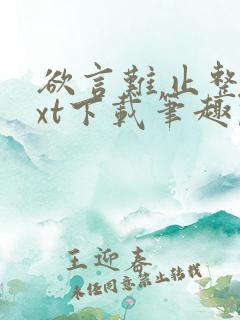 欲言難止整
xt下載筆趣
王迎春
未经同意禁止转载